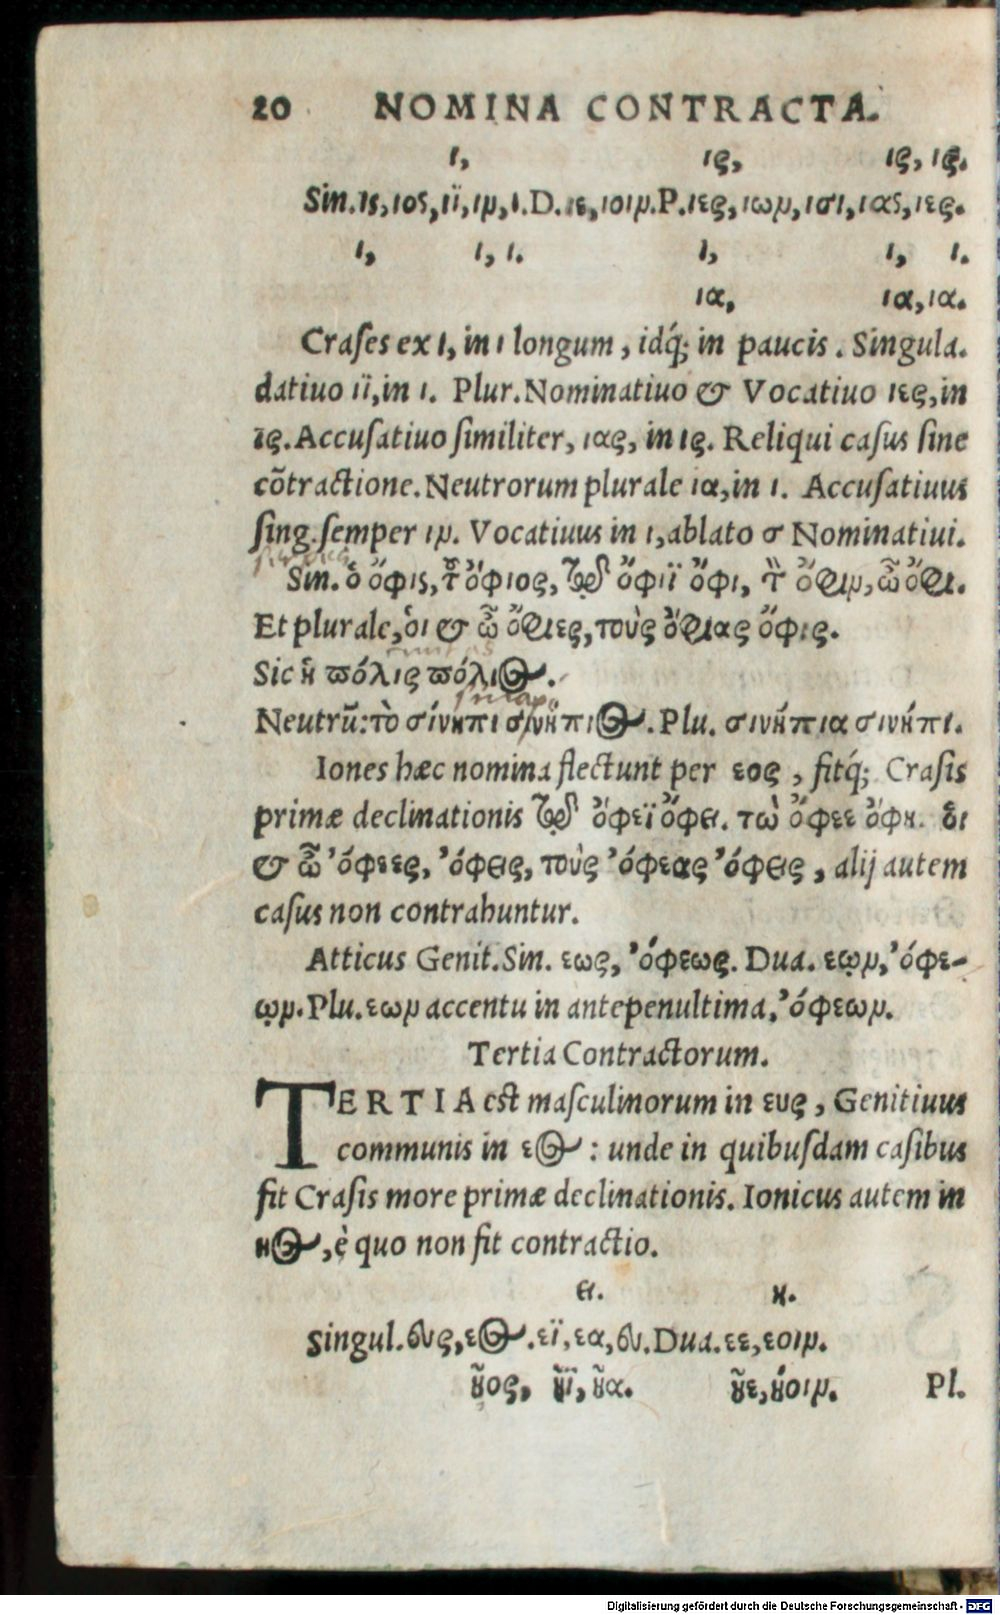 20 NOMINA CONTRACTA.
ι, ις, ις, ις.
Sin.ις,ιος,ιϊ,ιμ,ι.D.ιε,ιοιμ.P.ιες,ιωμ,ισι,ιας,ιες.
ι, ι, ι. ι, ι, ι.
ια, ια,ια.
Craſes ex ι, in ι longum, idq́; in paucis. Singula.
datiuo ιϊ,in ι. Plur.Nominatiuo & Vocatiuo ιες,in
ις.Accuſatiuo ſimiliter, ιας, in ις. Reliqui caſus ſine
cõtractione.Neutrorum plurale ια,in ι. Accuſatiuus
ſing.ſemper ιμ. Vocatiuus in ι,ablato σ Nominatiui.
Sin. ὁ ὄφις, τ͂ ὄφιος, τῷ ὄφιϊ ὄφι, τ̀ ὄφιμ,ὦ ὄφι.
Et plurale,ὁι & ὦ ὄφιες,τοὺς ὄφιας ὄφις.
Sic ἡ πόλις πόλιος.
Neutrũ:τὸ σίνηπι σινήπιος.Plu. σινήπια σινήπι.
Iones hæc nomina flectunt per εος, fitq́; Craſis
primæ declinationis τῷ ὄφεϊ ὄφει. τὼ ὄφεε ὄφη. ὁι
& ὦ ὄφεες, ὄφεις, τοὺς ὄφεας ὄφεις, alij autem
caſus non contrahuntur.
Atticus Genit.Sin. εως, ὄφεως. Dua. εῳμ, ὄφε-
ῳμ.Plu.εωμ accentu in antepenultima, ὄφεωμ.
Tertia Contractorum.
TERTIA est maſculinorum in ευς, Genitiuus
communis in εος: unde in quibuſdam caſibus
fit Craſis more primæ declinationis. Ionicus autem in
ηος,è quo non fit contractio.
ει. η.
Singul.ευς,εος.εϊ,εα,ευ.Dua.εε,εοιμ.
ῆος, ῆϊ,ῆα. ῆε,ήοιμ. Pl.
Digitalisierung gefördert durch die Deutsche Forschungsgemeinschaft - DFG